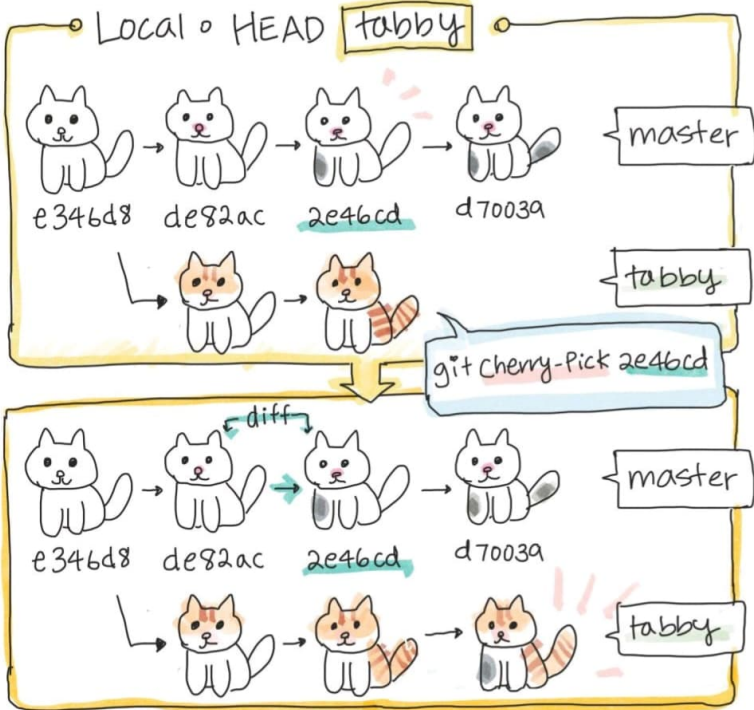 Local • HEAD tabby
master
e346d8 de82ac 2e46cd d7003a
tabby
git cherry-pick 2e46cd
diff
master
e346d8 de82ac 2e46cd d7003a
tabby